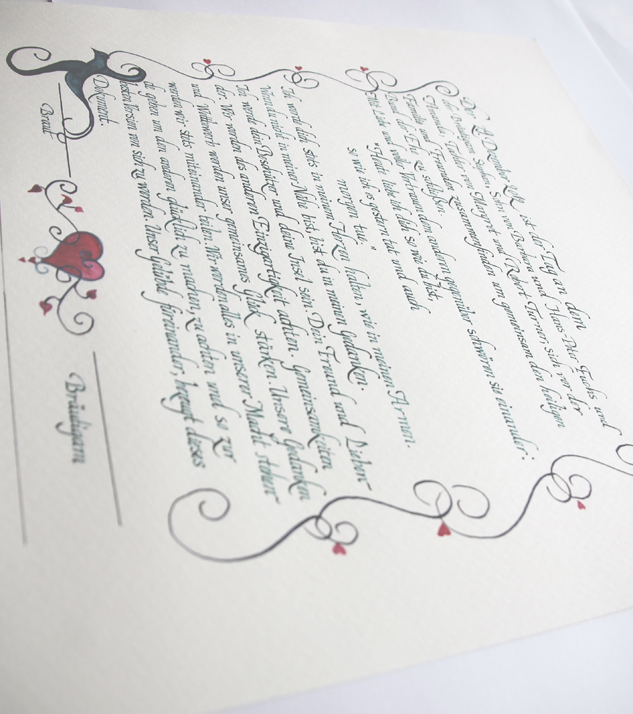 ist der Tag an dem
von Barbara und Hans Peter Fuchs und
Margret und Robert Turner, sich vor der
Familie und Freunden zusammenfinden um gemeinsam den heiligen
Bund der Ehe zu schließen.
Mit Liebe und vollem Vertrauen dem anderen gegenüber schwören sie einander:
"Heute lieb ich dich so wie du bist,
so wie ich es gestern tat und auch
morgen tu."
Ich werde dich stets in meinem Herzen halten, wie in meinen Armen.
Wenn du nicht in meiner Nähe bist, bist du in meinen Gedanken.
Ich werde dein Beschützer und deine Insel sein. Dein Freund und Lieben-
der. Wir werden des anderen Einzigartigkeit achten. Gemeinsamkeiten
und Wertewerk werden unser gemeinsames Glück stärken. Unsere Gedanken
werden wir stets miteinander teilen. Wir werden alles in unserer Macht stehen-
de geben um den anderen glücklich zu machen, zu achten und so zur
besten Person von sich zu werden. Unser Gelübde füreinander, bezeugt dieses
Dokument.
Braut
Bräutigam